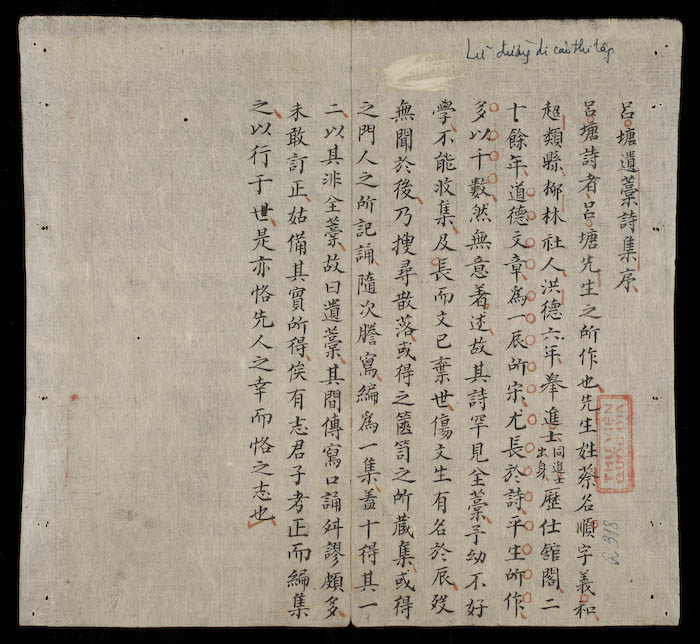 Lữ đường di cảo thi tập
呂塘遺藁詩集序
呂塘詩者呂塘先生之所作也先生姓蔡名順字義和
超類縣柳林社人洪德六年舉進士同進士出身歷仕舘閣二
十餘年道德文章爲一辰所宗尤長於詩平生所作
多以千數然無意著述故其詩罕見全藁予幼不好
學不能收集及長而文已棄世傷文生有名於辰歿
無聞於後乃搜尋散落或得之篋笥之所藏集或得
之門人之所記誦隨次謄寫編爲一集蓋十得其一
二以其非全藁故曰遺藁其間傳寫口誦舛謬頗多
未敢訂正姑備其實所得俟有志君子考正而編集
之以行于世是亦恪先人之幸而恪之志也
THƯ VIỆN
QUỐC GIA
R 318